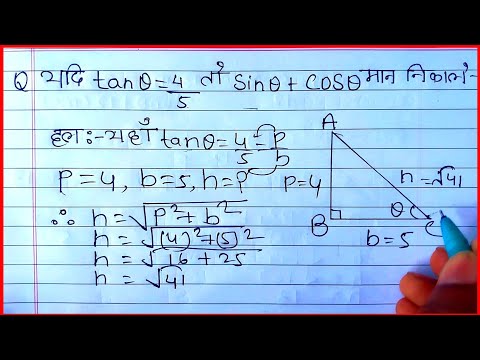 Q यदि tanθ = 4/5 तो sinθ + cosθ मान निकालें-
हल :- यहाँ tanθ = 4/5 = p/b
P = 4, b = 5, h = ?
∴ h = √P² + b²
h = √(4)² + (5)²
h = √16 + 25
h = √41
A
P = 4
h = √41
B
θ
C
b = 5